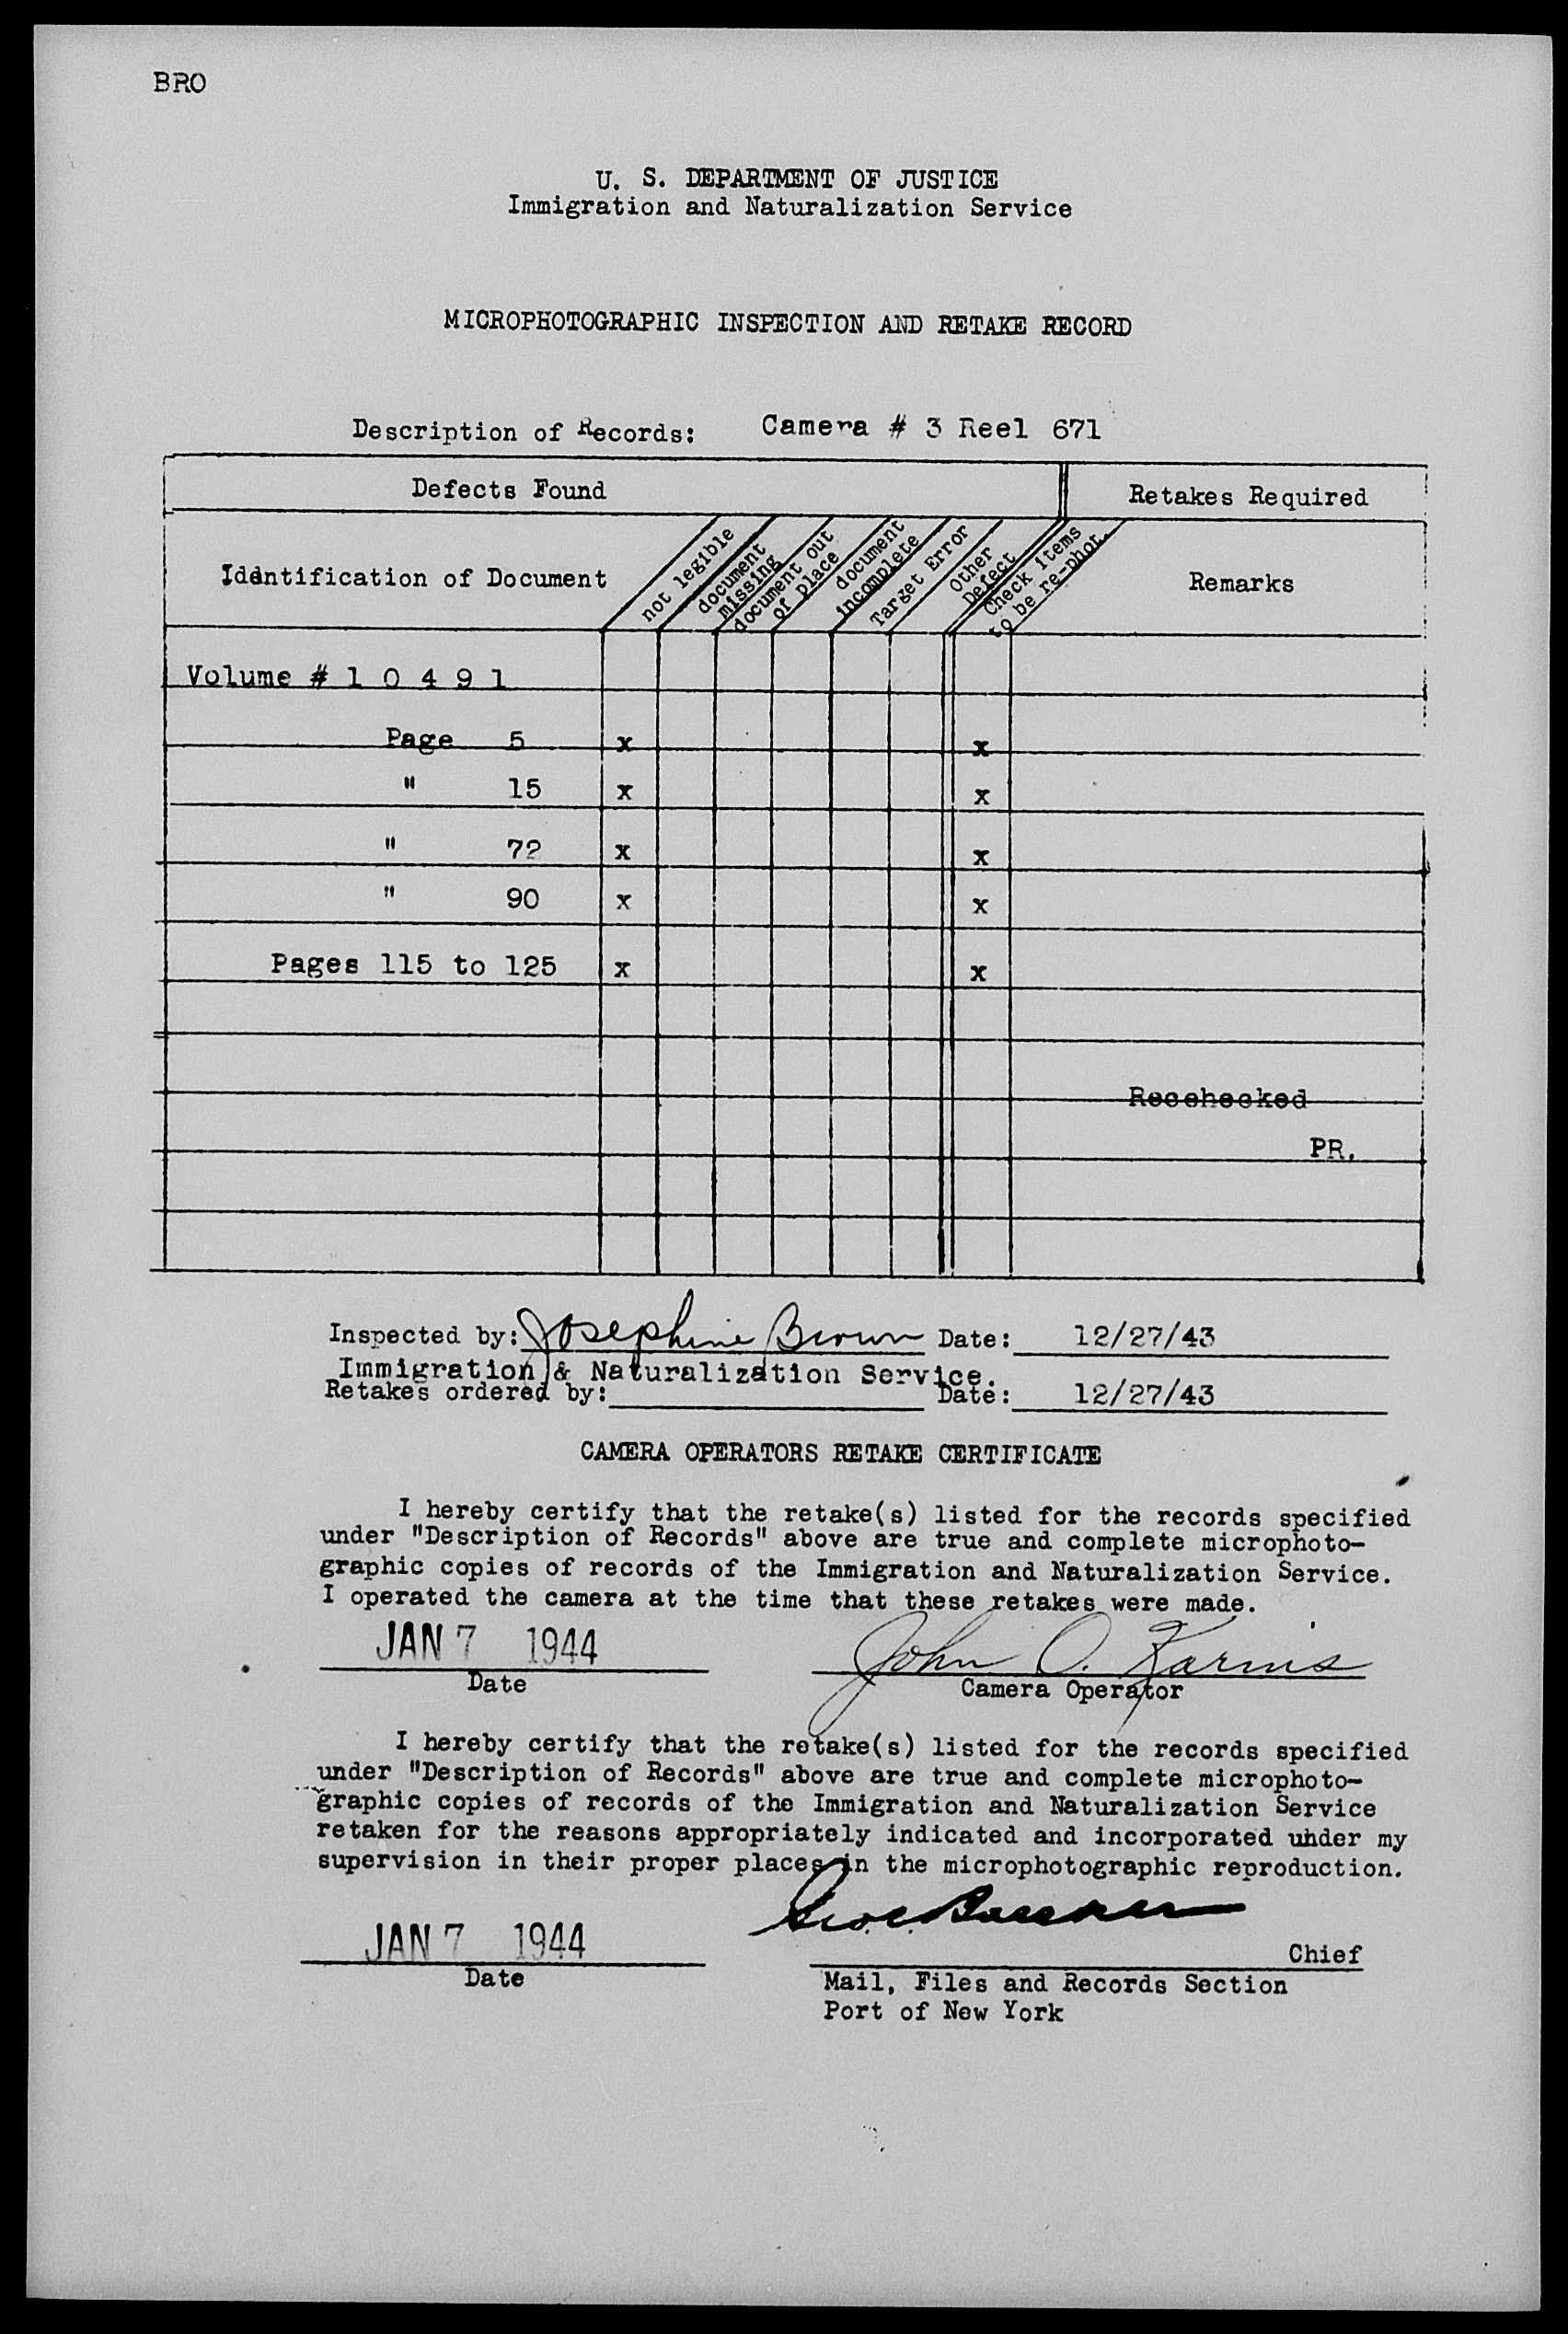 BRO
U. S. DEPARTMENT OF JUSTICE
Immigration and Naturalization Service
MICROPHOTOGRAPHIC INSPECTION AND RETAKE RECORD
Description of Records: Camera # 3 Reel 671
Defects Found Retakes Required
Identification of Document
not legible
document missing
document out of place
document incomplete
Target Error
Other Defect
Check items to be re-phot.
Remarks
Volume # 1 0 4 9 1
Page 5 x x
" 15 x x
" 72 x x
" 90 x x
Pages 115 to 125 x x
Recchecked
PR.
Inspected by: Josephine Brown Date: 12/27/43
Immigration & Naturalization Service.
Retakes ordered by: Date: 12/27/43
CAMERA OPERATORS RETAKE CERTIFICATE
I hereby certify that the retake(s) listed for the records specified
under "Description of Records" above are true and complete microphoto-
graphic copies of records of the Immigration and Naturalization Service.
I operated the camera at the time that these retakes were made.
JAN 7 1944 John O. Karins
Date Camera Operator
I hereby certify that the retake(s) listed for the records specified
under "Description of Records" above are true and complete microphoto-
graphic copies of records of the Immigration and Naturalization Service
retaken for the reasons appropriately indicated and incorporated under my
supervision in their proper places in the microphotographic reproduction.
JAN 7 1944 Chief
Date Mail, Files and Records Section
Port of New York